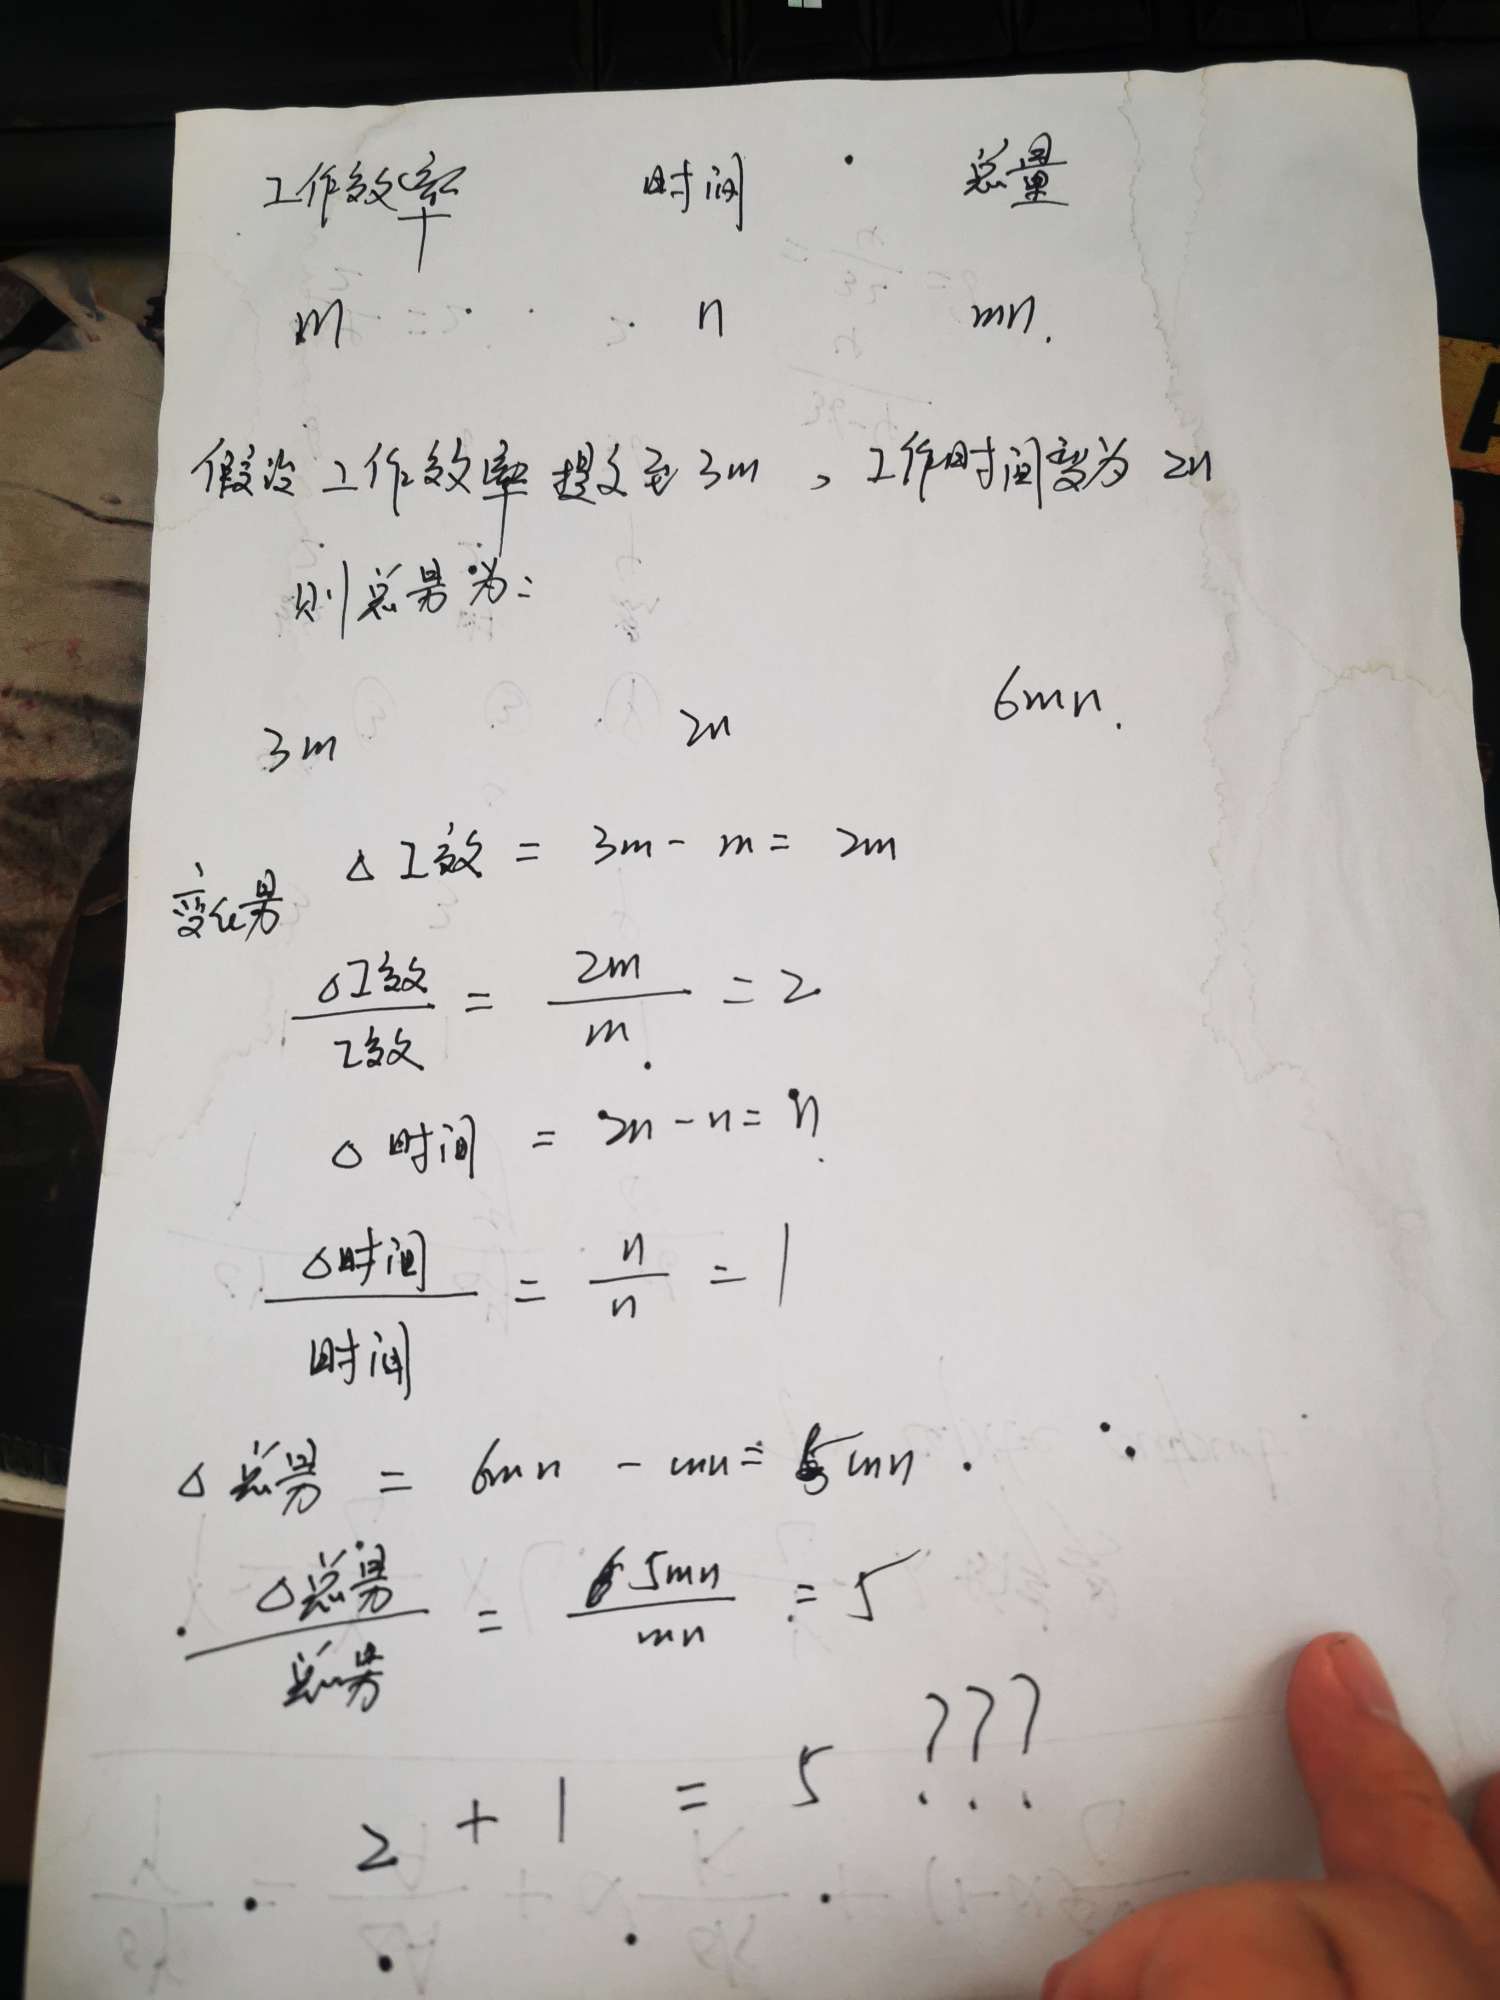 工作效率 时间 总量
m n mn.
假设工作效率提交至3m,工作时间变为2n
则总量为:
3m 2n 6mn.
变化量 △工效 = 3m - m = 2m
△工效/工效 = 2m/m = 2
△时间 = 2n - n = n
△时间/时间 = n/n = 1
△总量 = 6mn - mn = 5mn.
△总量/总量 = 5mn/mn = 5
2 + 1 = 5 ???